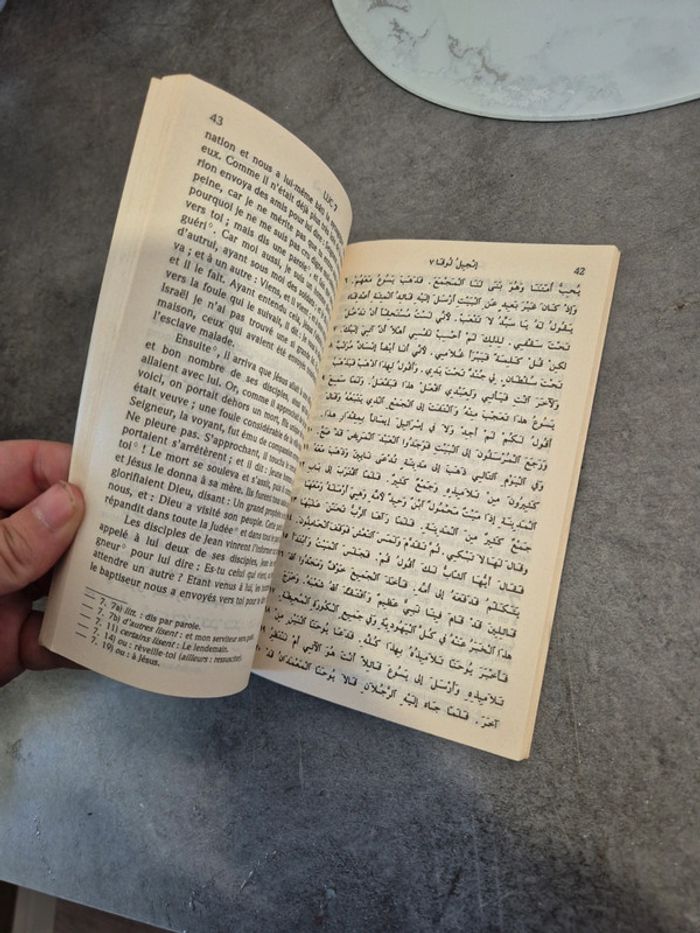 43
LUC 7
nation et nous a lui-même bâti la
eux. Comme il n'était déjà plus très
rion envoya des amis pour lui dire :
peine, car je ne mérite pas que
pourquoi je ne me suis pas cru digne
vers toi ; mais dis une parole° : et
guéri°. Car moi aussi, je suis un
d'autrui, ayant sous moi des soldats ; et
va ; et à un autre : Viens, et il vient ;
et il le fait. Ayant entendu cela, Jésus
vers la foule qui le suivait, il dit : Je
Israël je n'ai pas trouvé une si grande
maison, ceux qui avaient été envoyés
l'esclave malade.
Ensuite°, il arriva que Jésus allait
et bon nombre de ses disciples,
allaient avec lui. Or, comme il approchait
voici, on portait dehors un mort, fils
était veuve ; une foule considérable de la
Seigneur, la voyant, fut ému de compassion
Ne pleure pas. S'approchant, il toucha le
portaient s'arrêtèrent ; et il dit : Jeune
toi° ! Le mort se souleva et s'assit, puis il
et Jésus le donna à sa mère. Ils furent tous
glorifiaient Dieu, disant : Un grand prophète
nous, et : Dieu a visité son peuple. Cette
répandit dans toute la Judée° et dans tout le
Les disciples de Jean vinrent l'informer
appelé à lui deux de ses disciples, Jean
gneur° pour lui dire : Es-tu celui qui vient,
attendre un autre ? Etant venus à lui,
le baptiseur nous a envoyés vers toi pour
— 7. 7a) litt. : dis par parole.
— 7. 7b) d'autres lisent : et mon serviteur sera
— 7. 11) certains lisent : Le lendemain.
— 7. 14) ou : réveille-toi (ailleurs : ressusciter).
— 7. 19) ou : à Jésus.
إنجيل لوقا ٧
42
يُحِبُّ أُمَّتَنَا وَهُوَ بَنَى لَنَا الْمَجْمَعَ. فَذَهَبَ يَسُوعُ مَعَهُمْ. ٦
وَإِذْ كَانَ غَيْرَ بَعِيدٍ عَنِ الْبَيْتِ أَرْسَلَ إِلَيْهِ قَائِدُ الْمِئَةِ أَصْدِقَاءَ
يَقُولُ لَهُ يَا سَيِّدُ لَا تَتْعَبْ. لِأَنِّي لَسْتُ مُسْتَحِقًّا أَنْ تَدْخُلَ
تَحْتَ سَقْفِي. لِذَلِكَ لَمْ أَحْسِبْ نَفْسِي أَهْلًا أَنْ آتِيَ إِلَيْكَ.
لَكِنْ قُلْ كَلِمَةً فَيَبْرَأَ غُلَامِي. لِأَنِّي أَنَا أَيْضًا إِنْسَانٌ مُرَتَّبٌ
تَحْتَ سُلْطَانٍ. لِي جُنْدٌ تَحْتَ يَدِي. وَأَقُولُ لِهَذَا اذْهَبْ فَيَذْهَبُ
وَلِآخَرَ ائْتِ فَيَأْتِي وَلِعَبْدِي افْعَلْ هَذَا فَيَفْعَلُ. وَلَمَّا سَمِعَ
يَسُوعُ هَذَا تَعَجَّبَ مِنْهُ وَالْتَفَتَ إِلَى الْجَمْعِ الَّذِي يَتْبَعُهُ وَقَالَ
أَقُولُ لَكُمْ لَمْ أَجِدْ وَلَا فِي إِسْرَائِيلَ إِيمَانًا بِمِقْدَارِ هَذَا.
وَرَجَعَ الْمُرْسَلُونَ إِلَى الْبَيْتِ فَوَجَدُوا الْعَبْدَ الْمَرِيضَ قَدْ صَحَّ.
وَفِي الْيَوْمِ التَّالِي ذَهَبَ إِلَى مَدِينَةٍ تُدْعَى نَايِينَ وَذَهَبَ مَعَهُ
كَثِيرُونَ مِنْ تَلَامِيذِهِ وَجَمْعٌ كَثِيرٌ. فَلَمَّا اقْتَرَبَ إِلَى بَابِ
الْمَدِينَةِ إِذَا مَيْتٌ مَحْمُولٌ ابْنٌ وَحِيدٌ لِأُمِّهِ وَهِيَ أَرْمَلَةٌ وَمَعَهَا
جَمْعٌ كَثِيرٌ مِنَ الْمَدِينَةِ. فَلَمَّا رَآهَا الرَّبُّ تَحَنَّنَ عَلَيْهَا
وَقَالَ لَهَا لَا تَبْكِي. ثُمَّ تَقَدَّمَ وَلَمَسَ النَّعْشَ فَوَقَفَ الْحَامِلُونَ.
فَقَالَ أَيُّهَا الشَّابُّ لَكَ أَقُولُ قُمْ. فَجَلَسَ الْمَيْتُ وَابْتَدَأَ
يَتَكَلَّمُ فَدَفَعَهُ إِلَى أُمِّهِ. فَأَخَذَ الْجَمِيعَ خَوْفٌ وَمَجَّدُوا اللهَ
قَائِلِينَ قَدْ قَامَ فِينَا نَبِيٌّ عَظِيمٌ وَافْتَقَدَ اللهُ شَعْبَهُ. وَخَرَجَ
هَذَا الْخَبَرُ عَنْهُ فِي كُلِّ الْيَهُودِيَّةِ وَفِي جَمِيعِ الْكُورَةِ الْمُحِيطَةِ.
فَأَخْبَرَ يُوحَنَّا تَلَامِيذُهُ بِهَذَا كُلِّهِ. فَدَعَا يُوحَنَّا اثْنَيْنِ مِنْ
تَلَامِيذِهِ وَأَرْسَلَ إِلَى يَسُوعَ قَائِلًا أَنْتَ هُوَ الْآتِي أَمْ نَنْتَظِرُ
آخَرَ. فَلَمَّا جَاءَ إِلَيْهِ الرَّجُلَانِ قَالَا يُوحَنَّا الْمَعْمَدَانُ قَدْ